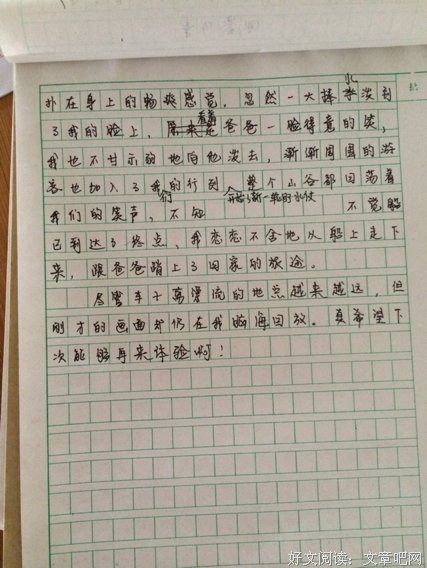 扑在身上的畅爽感觉，忽然一大捧水泼到
了我的脸上，看着爸爸一脸得意的笑，
我也不甘示弱地向他泼去，渐渐周围的游
客也加入了我们的行列，开始了新一轮的水仗 整个山谷都回荡着
我们的笑声，不知 不觉船
已到达了终点，我恋恋不舍地从船上走下
来，跟爸爸踏上了回家的旅途。
尽管车子离漂流的地点越来越远，但
刚才的画面却仍在我脑海回放。真希望下
次能够再来体验啊！
好文阅读：文章吧网